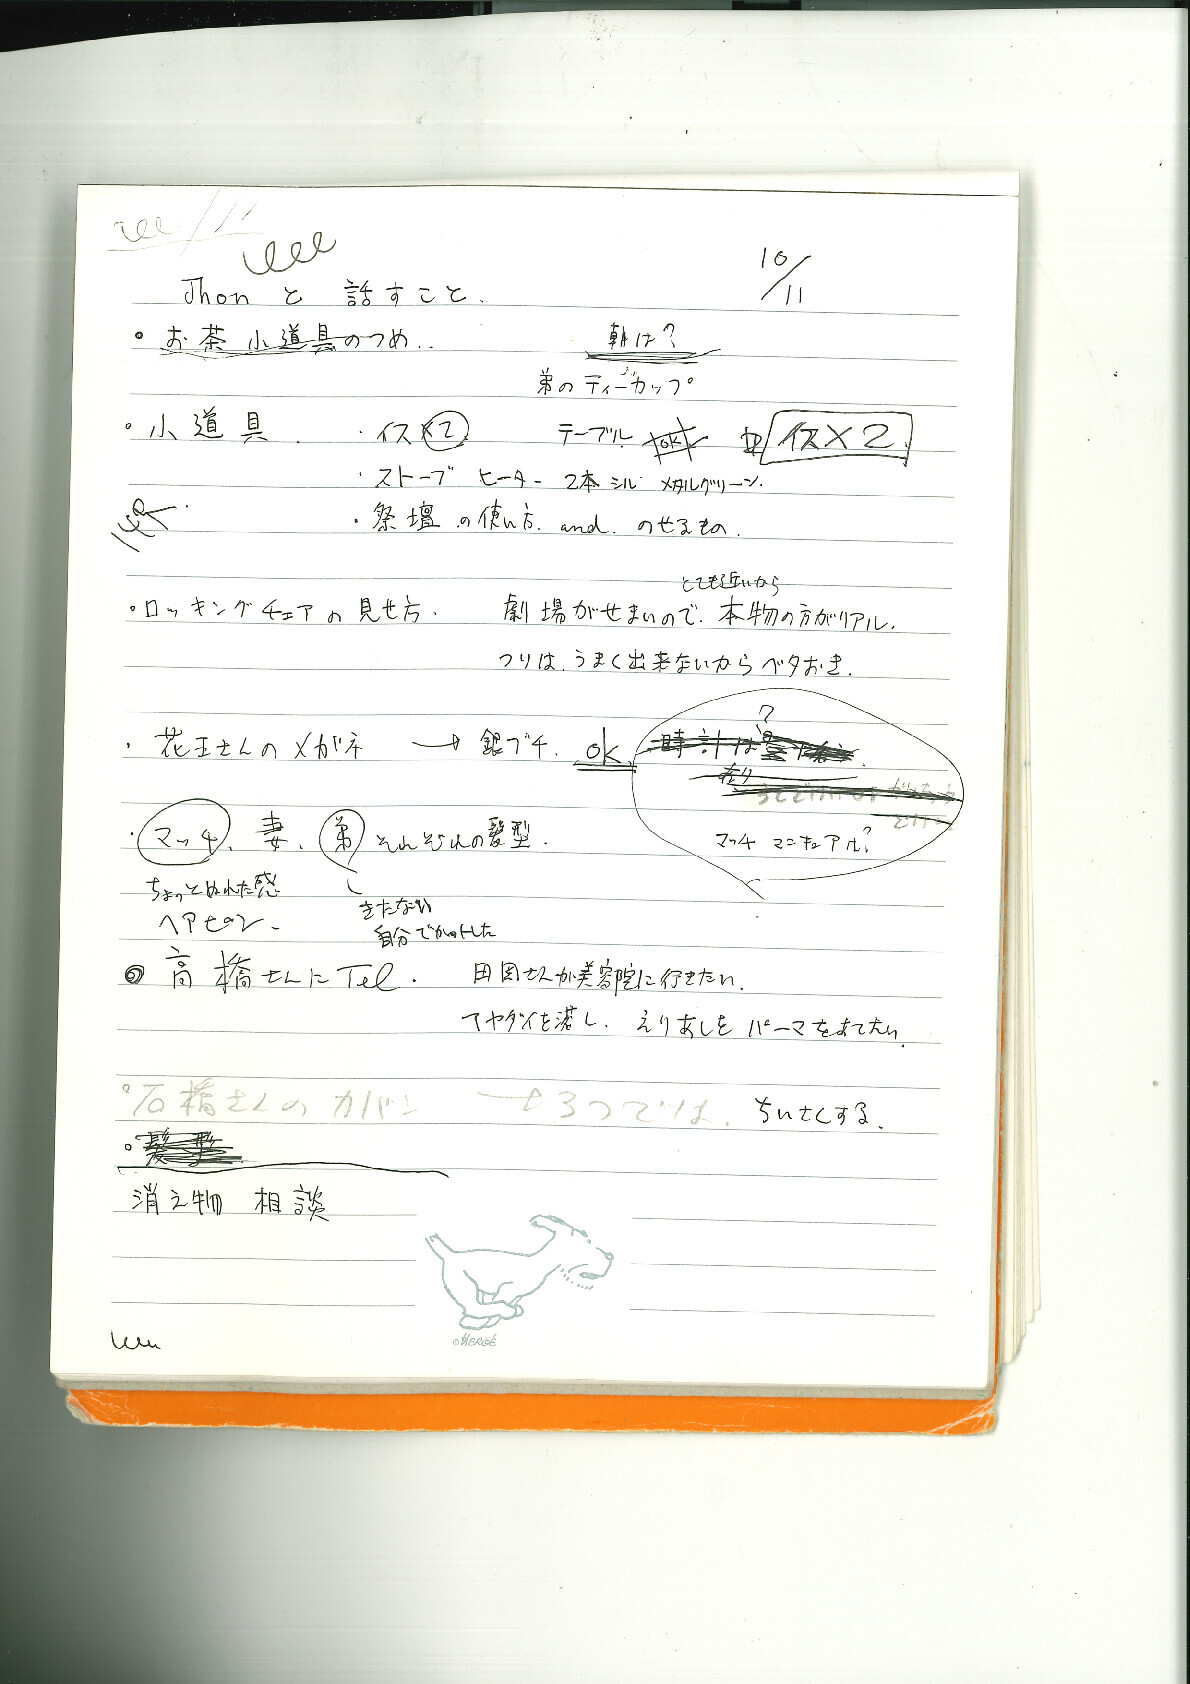 Jhonと 話すこと. 10/11
・お茶 小道具のつめ.. 朝は?
弟のティーカップ
・小道具. ・イス×2 テーブル ok イス×2
・ストーブ ヒーター 2本 シル メタルグリーン.
・祭壇の使い方. and. のせるもの.
とても近いから
・ロッキングチェアの見せ方. 劇場がせまいので. 本物の方がリアル.
つりは.うまく出来ないからベタおき.
?
・花王さんのメガネ → 銀ブチ. ok 時計は
・マッチ、妻、弟 それぞれの髪型. マッチ マニキュアは?
ちょっとぬれた感 きたない
ヘアピン. 自分でカットした
・高橋さんにTel. 田岡さんが美容院に行きたい.
えりあしを パーマをあてたい.
・石橋さんの カバン → 3つでは. ちいさくする.
・髪型
消え物 相談
©HERGÉ